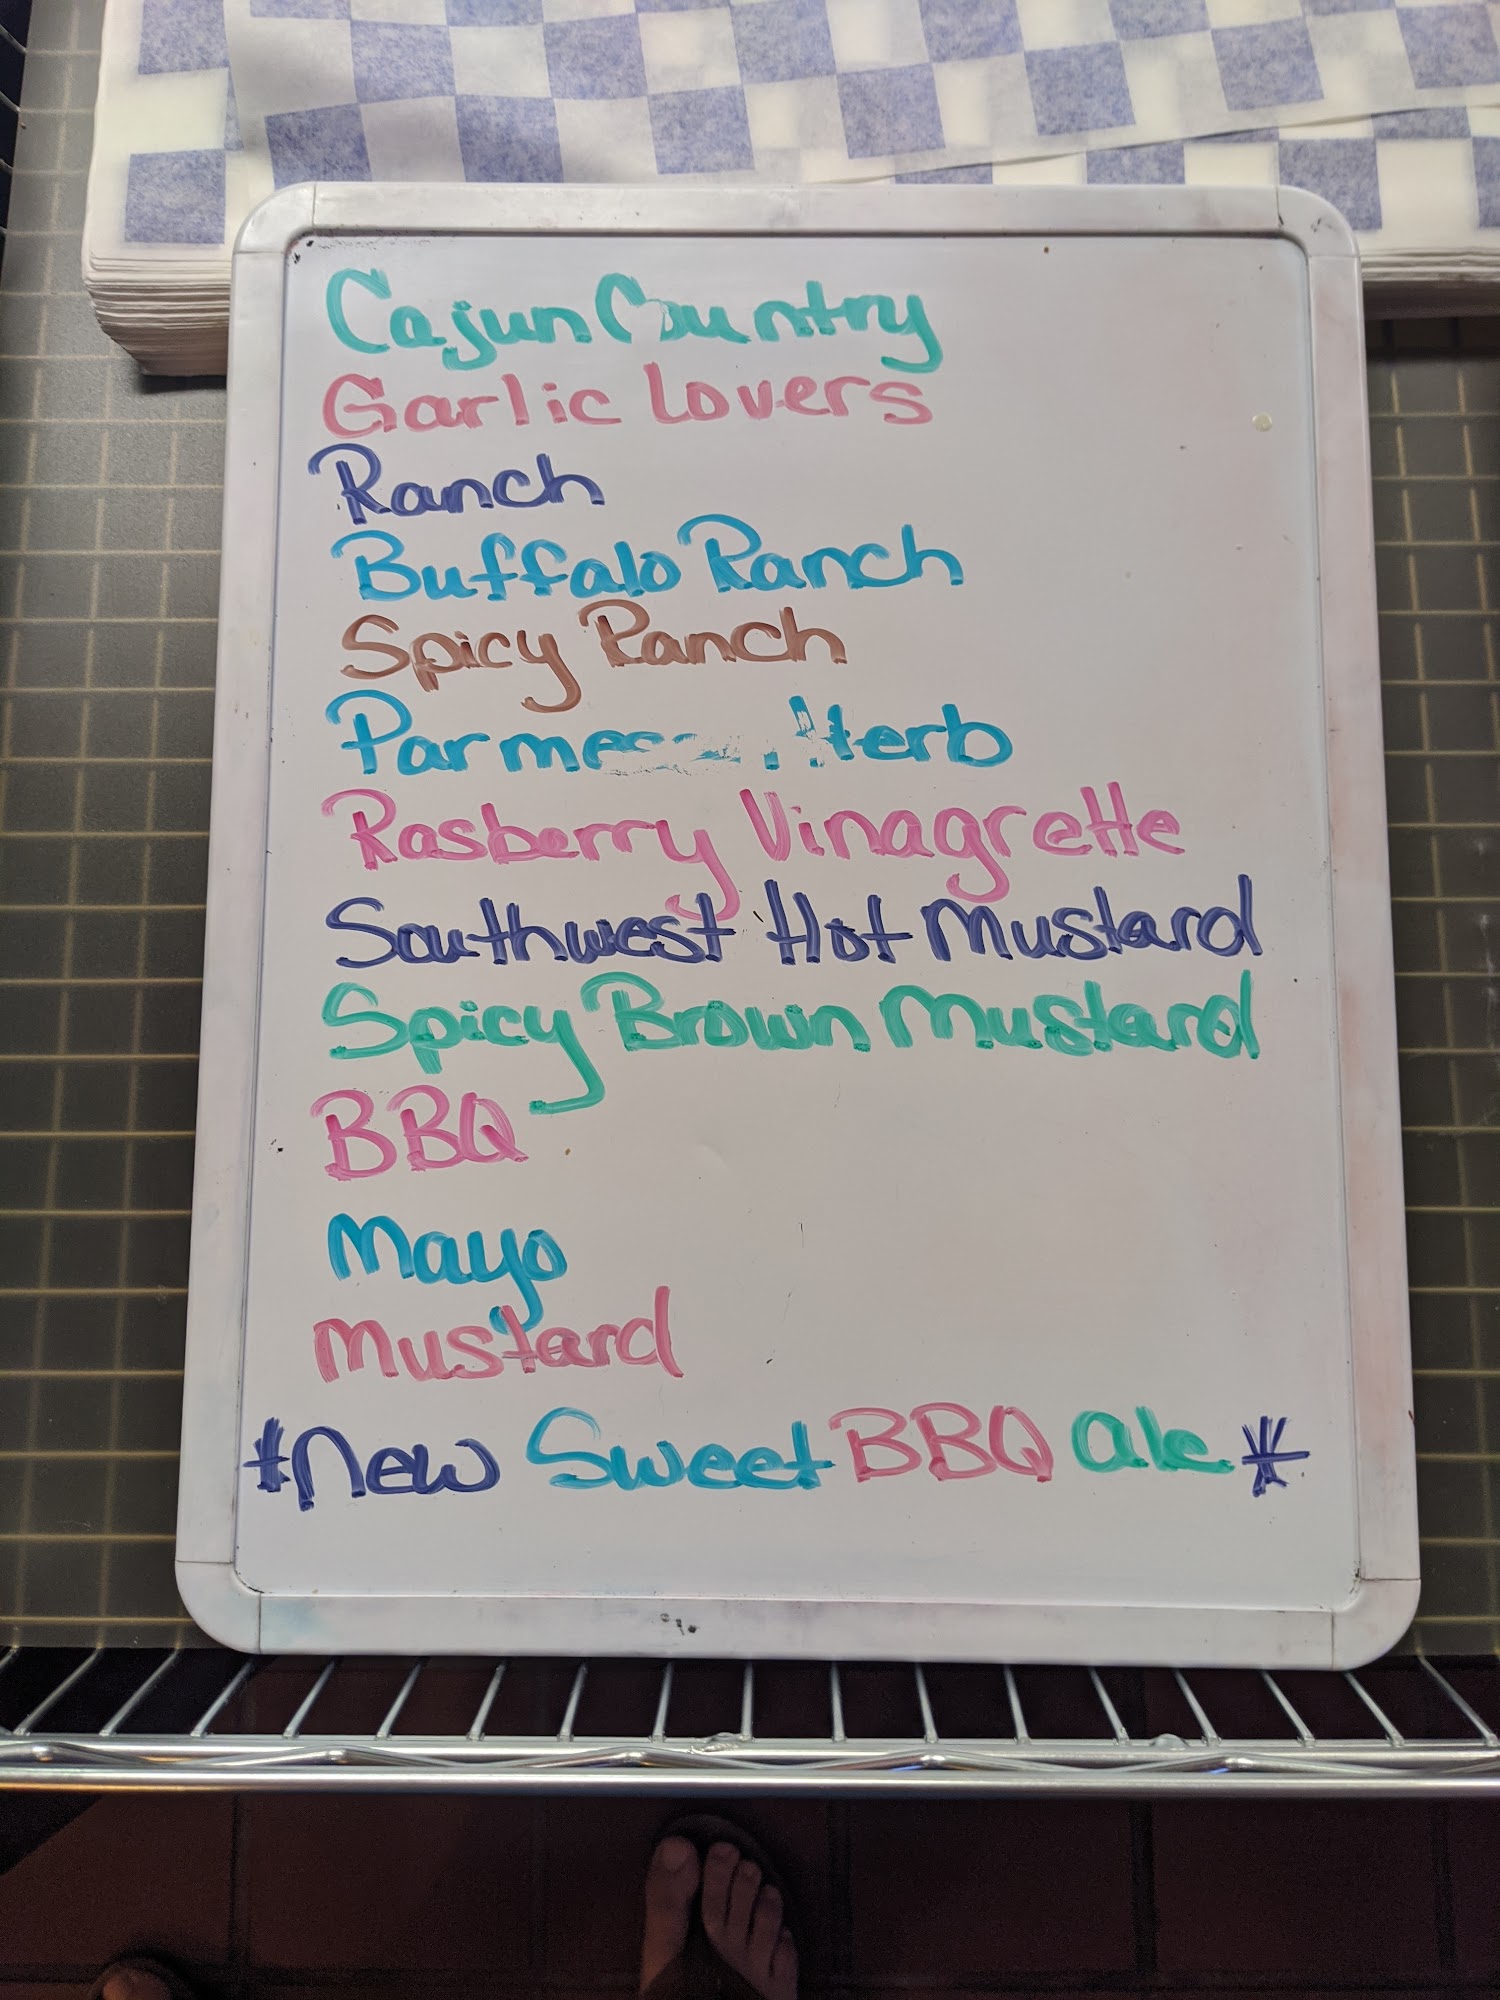 Cajun Country
Garlic Lovers
Ranch
Buffalo Ranch
Spicy Ranch
Parmesan Herb
Rasberry Vinagrette
Southwest Hot Mustard
Spicy Brown Mustard
BBQ
Mayo
Mustard
*New Sweet BBQ Ale*